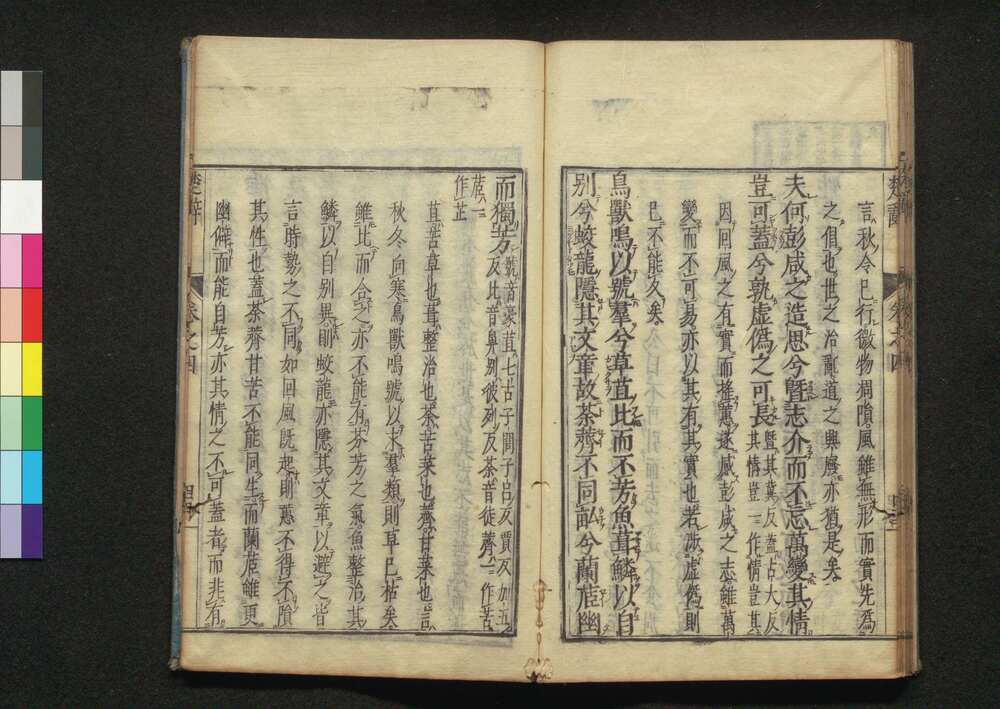 言秋令已行微物凋隕風雖無形而實先為
之倡也世之治亂道之興廢亦猶是矣
夫何彭咸之造思兮曁志介而不忘萬變其情
豈可蓋兮孰虛偽之可長曁其冀反蓋占大反
其情豈一作情豈其
因回風之有實而搖蕙遂感彭咸之志雖萬
變而不可易亦以其有其實也若涉虛偽則
已不能久矣
鳥獸鳴以號羣兮草苴比而不芳魚葺鱗以自
别兮蛟龍隱其文章故荼薺不同畝兮蘭茝幽
楚辭
卷之四
而獨芳號音豪苴七古子閭子呂反賈反加五
反比音鼻别彼列反荼音徒薺一作苦
茝一作芷
苴苦草也葺整治也荼苦菜也薺甘菜也言
秋冬向寒鳥獸鳴號以求羣類則草已枯矣
雖比而合之亦不能有芬芳之氣魚整治其
鱗以自别異則蛟龍亦隱其文章以避之皆
言時勢之不同如回風既起則蕙不得不隕
其性也蓋荼薺甘苦不能同生而蘭茝雖更
幽僻而能自芳亦其情之不可蓋者而非有
楚辭
卷之四